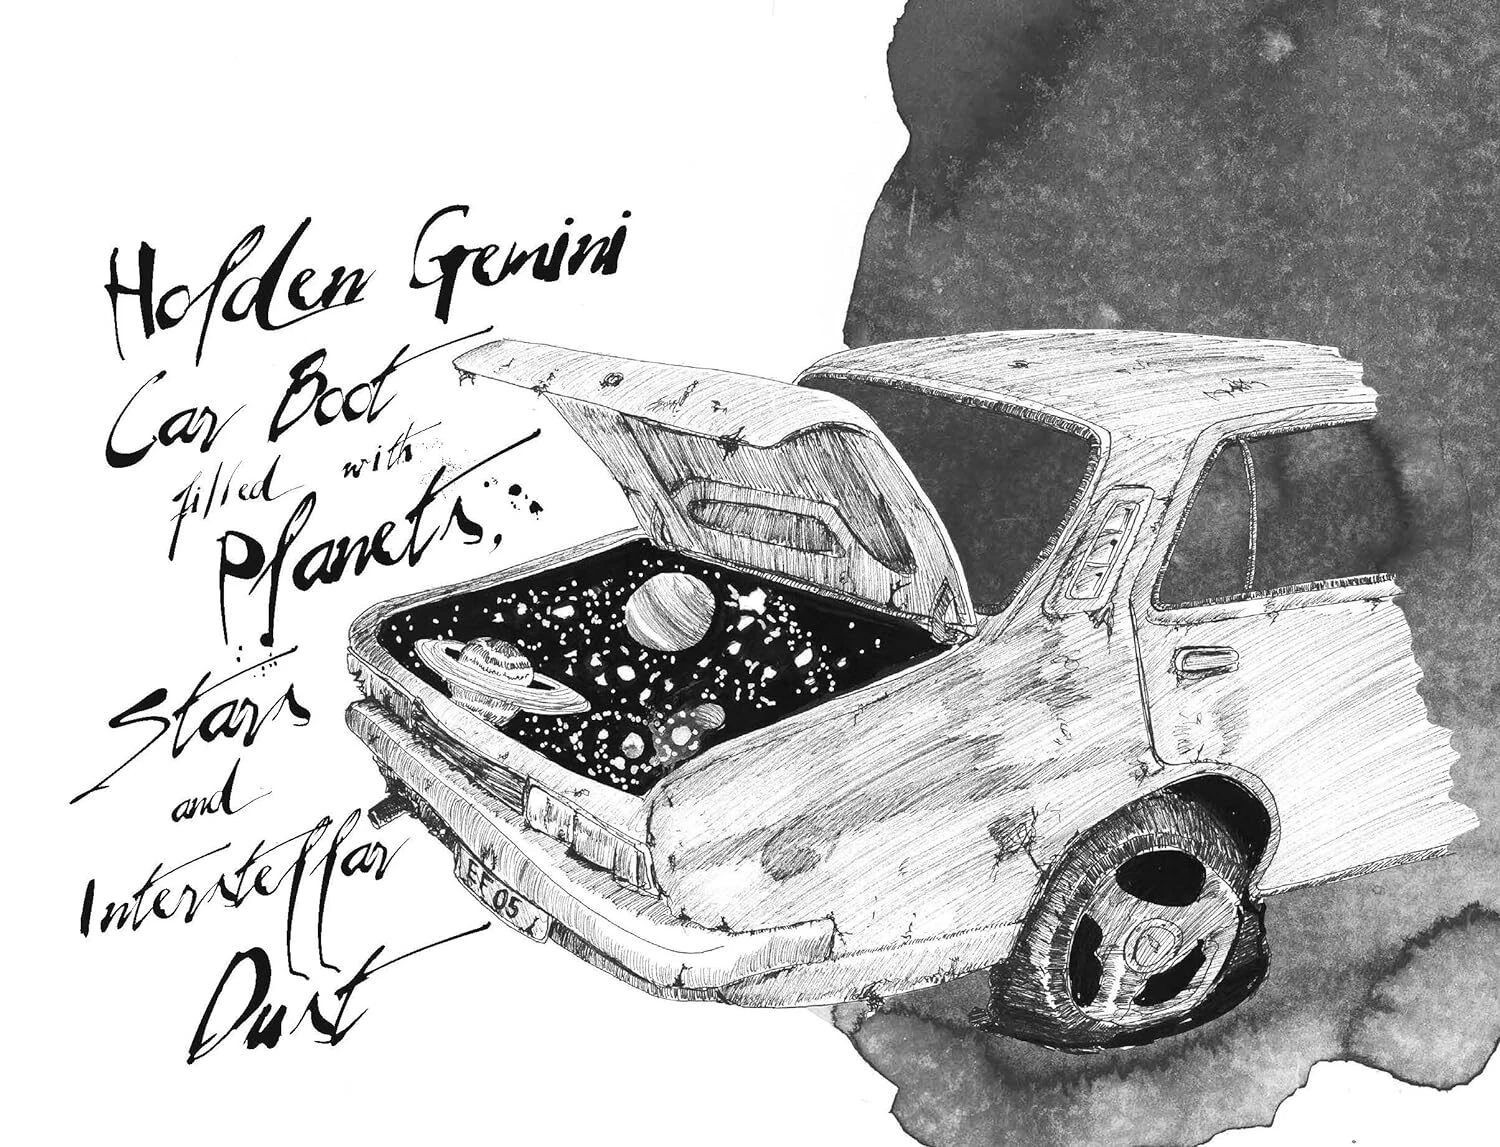 Holden Gemini
Car Boot
filled with
Planets,
Stars
and
Interstellar
Dust
EF 05